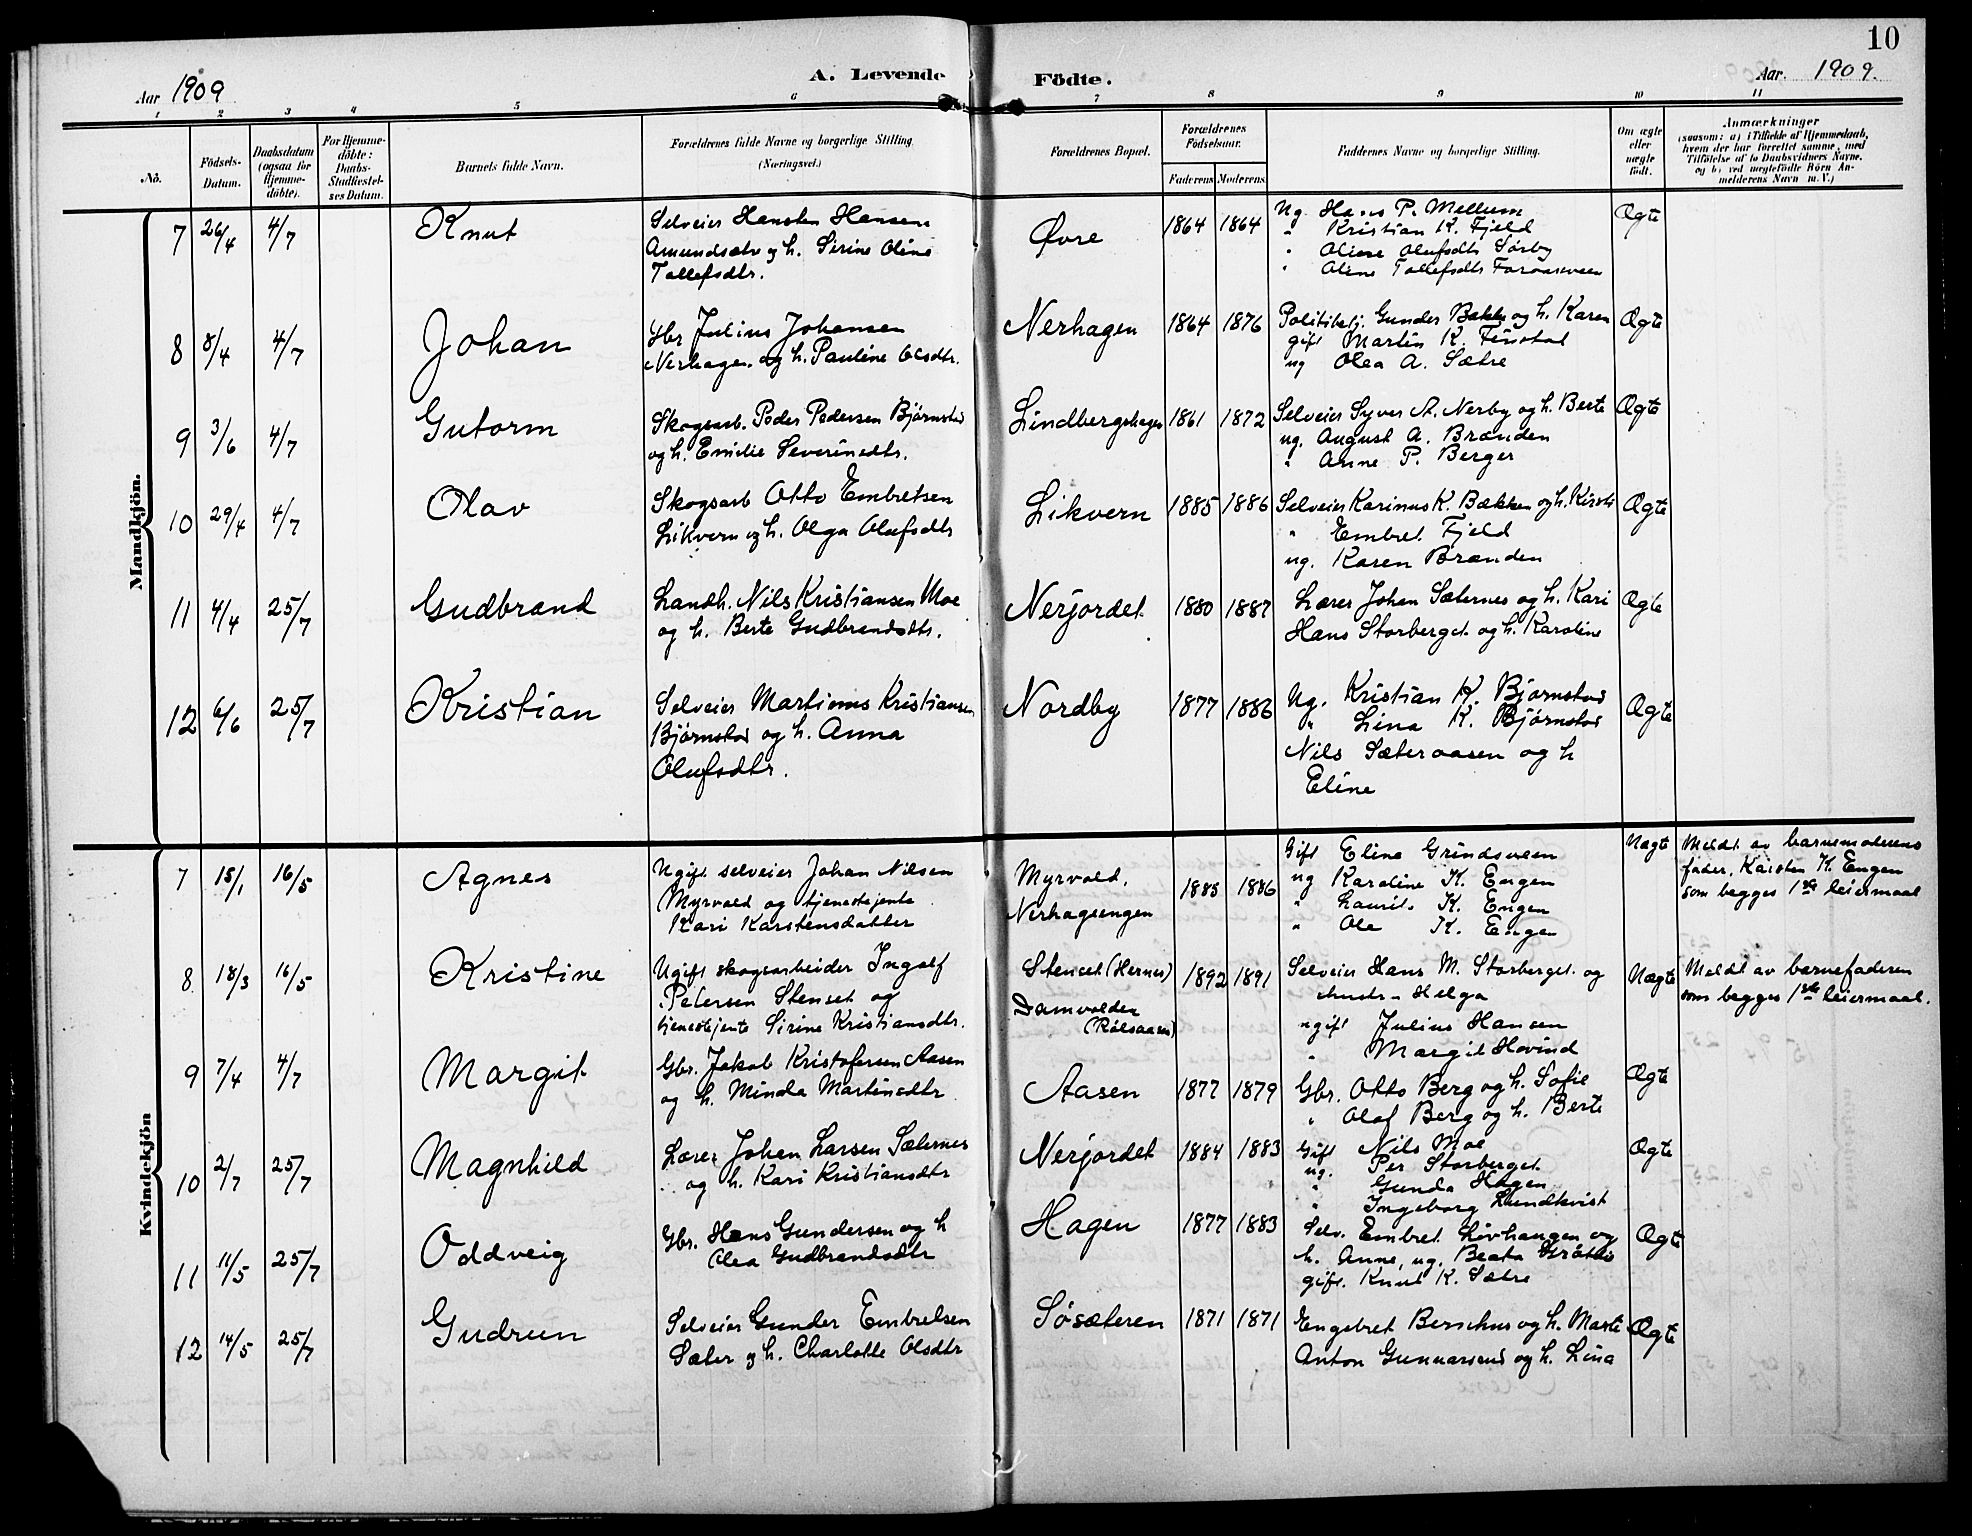 10
Aar 1909
A. Levende Födte.
Aar. 1909.
1 2 3 4 5 6 7 8 9 10 11
No.
Födsels-Datum.
Daabsdatum (ogsaa for Hjemme-döbte).
For Hjemme-döbte: Daabs-Stadfæstel-ses Datum.
Barnets fulde Navn.
Forældrenes fulde Navne og borgerlige Stilling. (Næringsvei.)
Forældrenes Bopæl.
Forældrenes Födselsaar.
Faderens Moderens
Faddernes Navne og borgerlige Stilling.
Om ægte eller uægte födt.
Anmærkninger
(saasom: a) i Tilfælde af Hjemmedaab,
hvem der har forrettet samme, med
Tilföielse af to Daabsvidners Navne,
og b) ved uægtefödte Börn An-
melderens Navn m. V.)
Mandkjön.
7 26/4 4/7 Knut
Selveier Hansten Hansen
Amundsætr og h. Sirine Oline
Tollefsdtr.
Øvre 1864 1864
Ug. Hans P. Mellum
" Kristian K. Fjeld
" Oliene Olufsdtr Sørby
" Oline Tollefsdtr
Ægte
8 8/4 4/7 Johan
Gbr Julius Johansen
Nerhagen og h. Pauline Olsdtr.
Nerhagen 1864 1876
Politibtj. Gunder Bakke og h. Karen
gift Martin K. Finstad
ug Olea A. Sætre
Ægte
9 3/6 4/7 Gutorm
Skogsarb. Peder Pedersen Bjørnstad
og h. Emilie Severinsdtr.
Lindbergshagen 1861 1872
Selveier Syver A. Nerby og h. Berte
ug. August A. Brænden
" Anne P. Berger
Ægte
10 29/4 4/7 Olav
Skogsarb Otto Embretsen
Likvern og h. Olga Olufsdtr
Likvern 1885 1886
Selveier Karinus K. Bækken og h. Kirsti
" Embret Fjeld
ug. Karen Brænden
Ægte
11 4/4 25/7 Gudbrand
Landh. Nils Kristiansen Moe
og h. Berte Gudbrandsdtr.
Nerjordet 1880 1887
Lærer Johan Sæternes og h. Kari
Hans Storberget og h. Karoline
Ægte
12 6/6 25/7 Kristian
Selveier Martinus Kristiansen
Bjørnstad og h. Anna
Olufsdtr.
Nordby 1877 1886
Ug. Kristian K. Bjørnstad
" Lina K. Bjørnstad
Nils Sæteraasen og h
Eline
Ægte
Kvindekjön
7 15/1 16/5 Agnes
Ugift selveier Johan Nilsen
Myrvold og tjenestejente
Kari Karstensdatter
Myrvold.
Nerhagsengen
1885 1886
Gift Eline Grindsveen
ug Karoline K. Engen
" Laurits K. Engen
" Ole K. Engen
Uægte
Meldt av barnemoderens
fader, Karsten K. Engen
som begges 1ste leiermaal
8 18/3 16/5 Kristine
Ugift skogsarbeider Ingolf
Petersen Stenset og
tjenestejente Sirine Kristiansdtr.
Stenset (Hernes)
Damvolden
(Rölsaasen)
1892 1891
Selveier Hans M. Storberget og
hustr. Helga
ugift Julius Hansen
" Margit Hovind
Uægte
Meldt av barnefaderen
som begges 1ste leiermaal.
9 7/4 4/7 Margit
Gbr. Jakob Kristofersen Aasen
og h. Minda Martinsdtr.
Aasen 1877 1879
Gbr. Otto Berg og h. Sofie
" Olaf Berg og h. Berte
Ægte
10 2/7 25/7 Magnhild
Lærer Johan Larsen Sæternes
og h. Kari Kristiansdtr
Nerjordet 1884 1883
Gift Nils Moe
ug. Per Storberget
" Gunda Hagen
" Ingeborg Lundkvist
Ægte
11 11/5 25/7 Oddveig
Gbr. Hans Gundersen og h
Olea Gudbrandsdtr
Hagen 1877 1883
Selv. Embret Løvhaugen og
h. Anne, ug. Beata
gift. Knut K. Sætre
Ægte
12 14/5 25/7 Gudrun
Selveier Gunder Embretsen
Sæter og h. Charlotte Olsdtr
Søsæteren 1871 1871
Engebret Berschus og h. Marte
Anton Gunnarsrud og h. Lina
Ægte